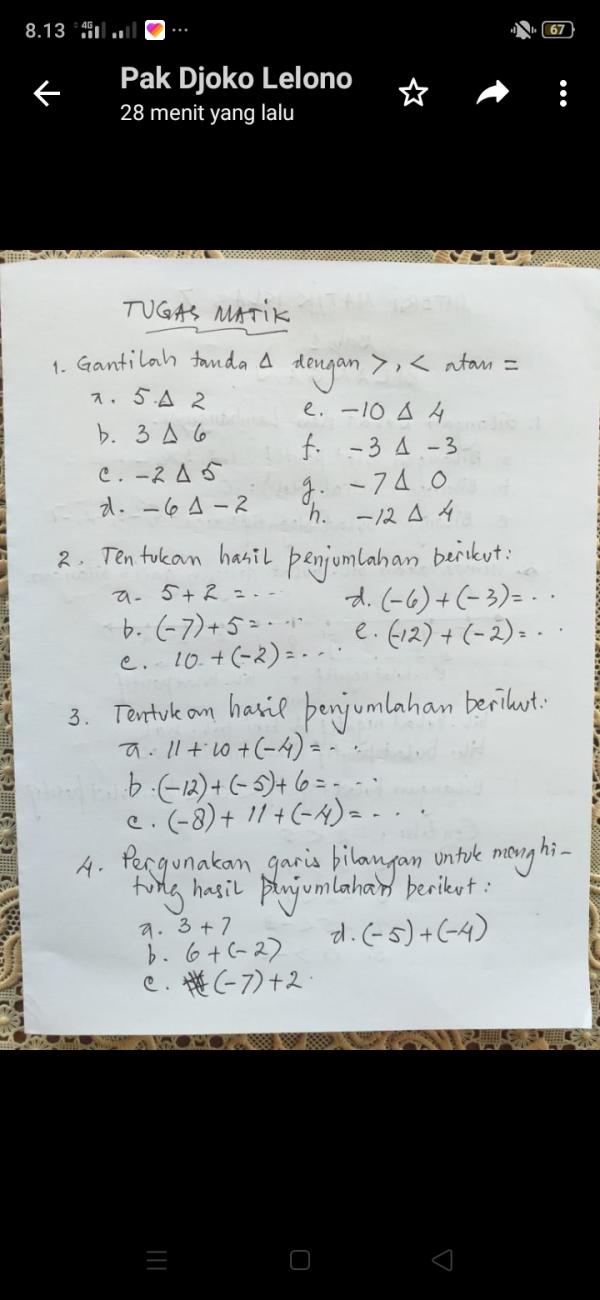 8.13 4G 67
Pak Djoko Lelono
28 menit yang lalu
TUGAS MATIK
1. Gantilah tanda Δ dengan >, < atau =
a. 5 Δ 2
b. 3 Δ 6
c. -2 Δ 5
d. -6 Δ -2
e. -10 Δ 4
f. -3 Δ -3
g. -7 Δ 0
h. -12 Δ 4
2. Tentukan hasil penjumlahan berikut:
a. 5 + 2 = ...
b. (-7) + 5 = ...
c. 10 + (-2) = ...
d. (-6) + (-3) = ..
e. (-12) + (-2) = ..
3. Tentukan hasil penjumlahan berikut:
a. 11 + 10 + (-4) = ..
b. (-12) + (-5) + 6 = ...
c. (-8) + 11 + (-4) = ...
4. Pergunakan garis bilangan untuk menghi-
tung hasil penjumlahan berikut:
a. 3 + 7
b. 6 + (-2)
c. (-7) + 2.
d. (-5) + (-4)